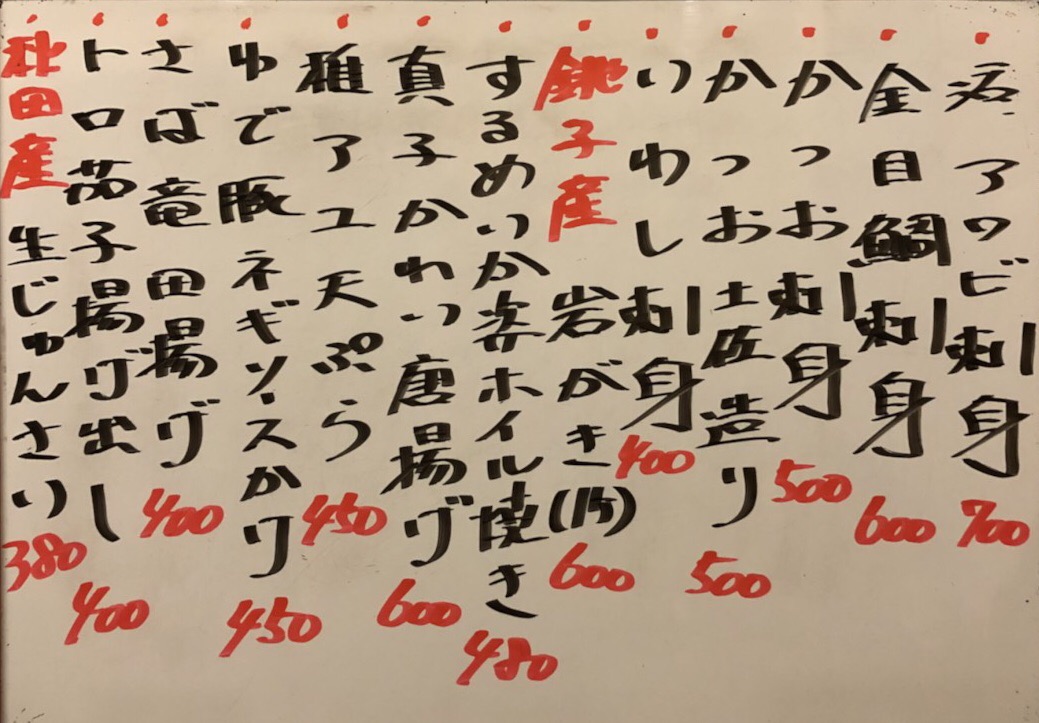 活アワビ刺身 700
金目鯛刺身 600
かつお刺身 500
かつお土佐造り 500
いわし刺身 400
銚子産 岩がき(1ケ) 600
するめいか姿ホイル焼き 480
真子かれい唐揚げ 600
稚アユ天ぷら 450
ゆで豚ネギソースかけ 450
さば竜田揚げ 400
トロ茄子揚げ出し 400
秋田産 生じゅんさい 380